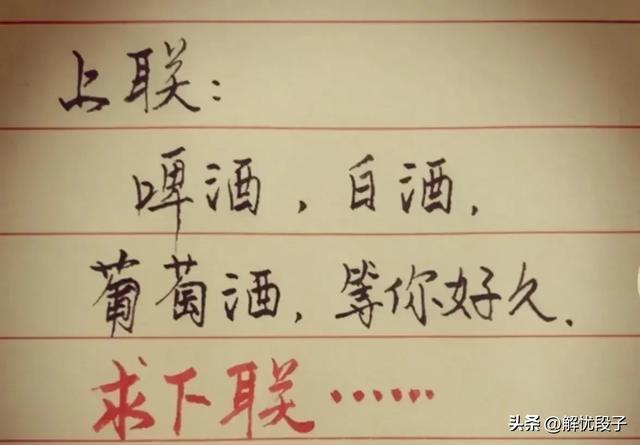 上联：
啤酒，白酒，
葡萄酒，等你好久．
求下联……
头条 @解忧段子